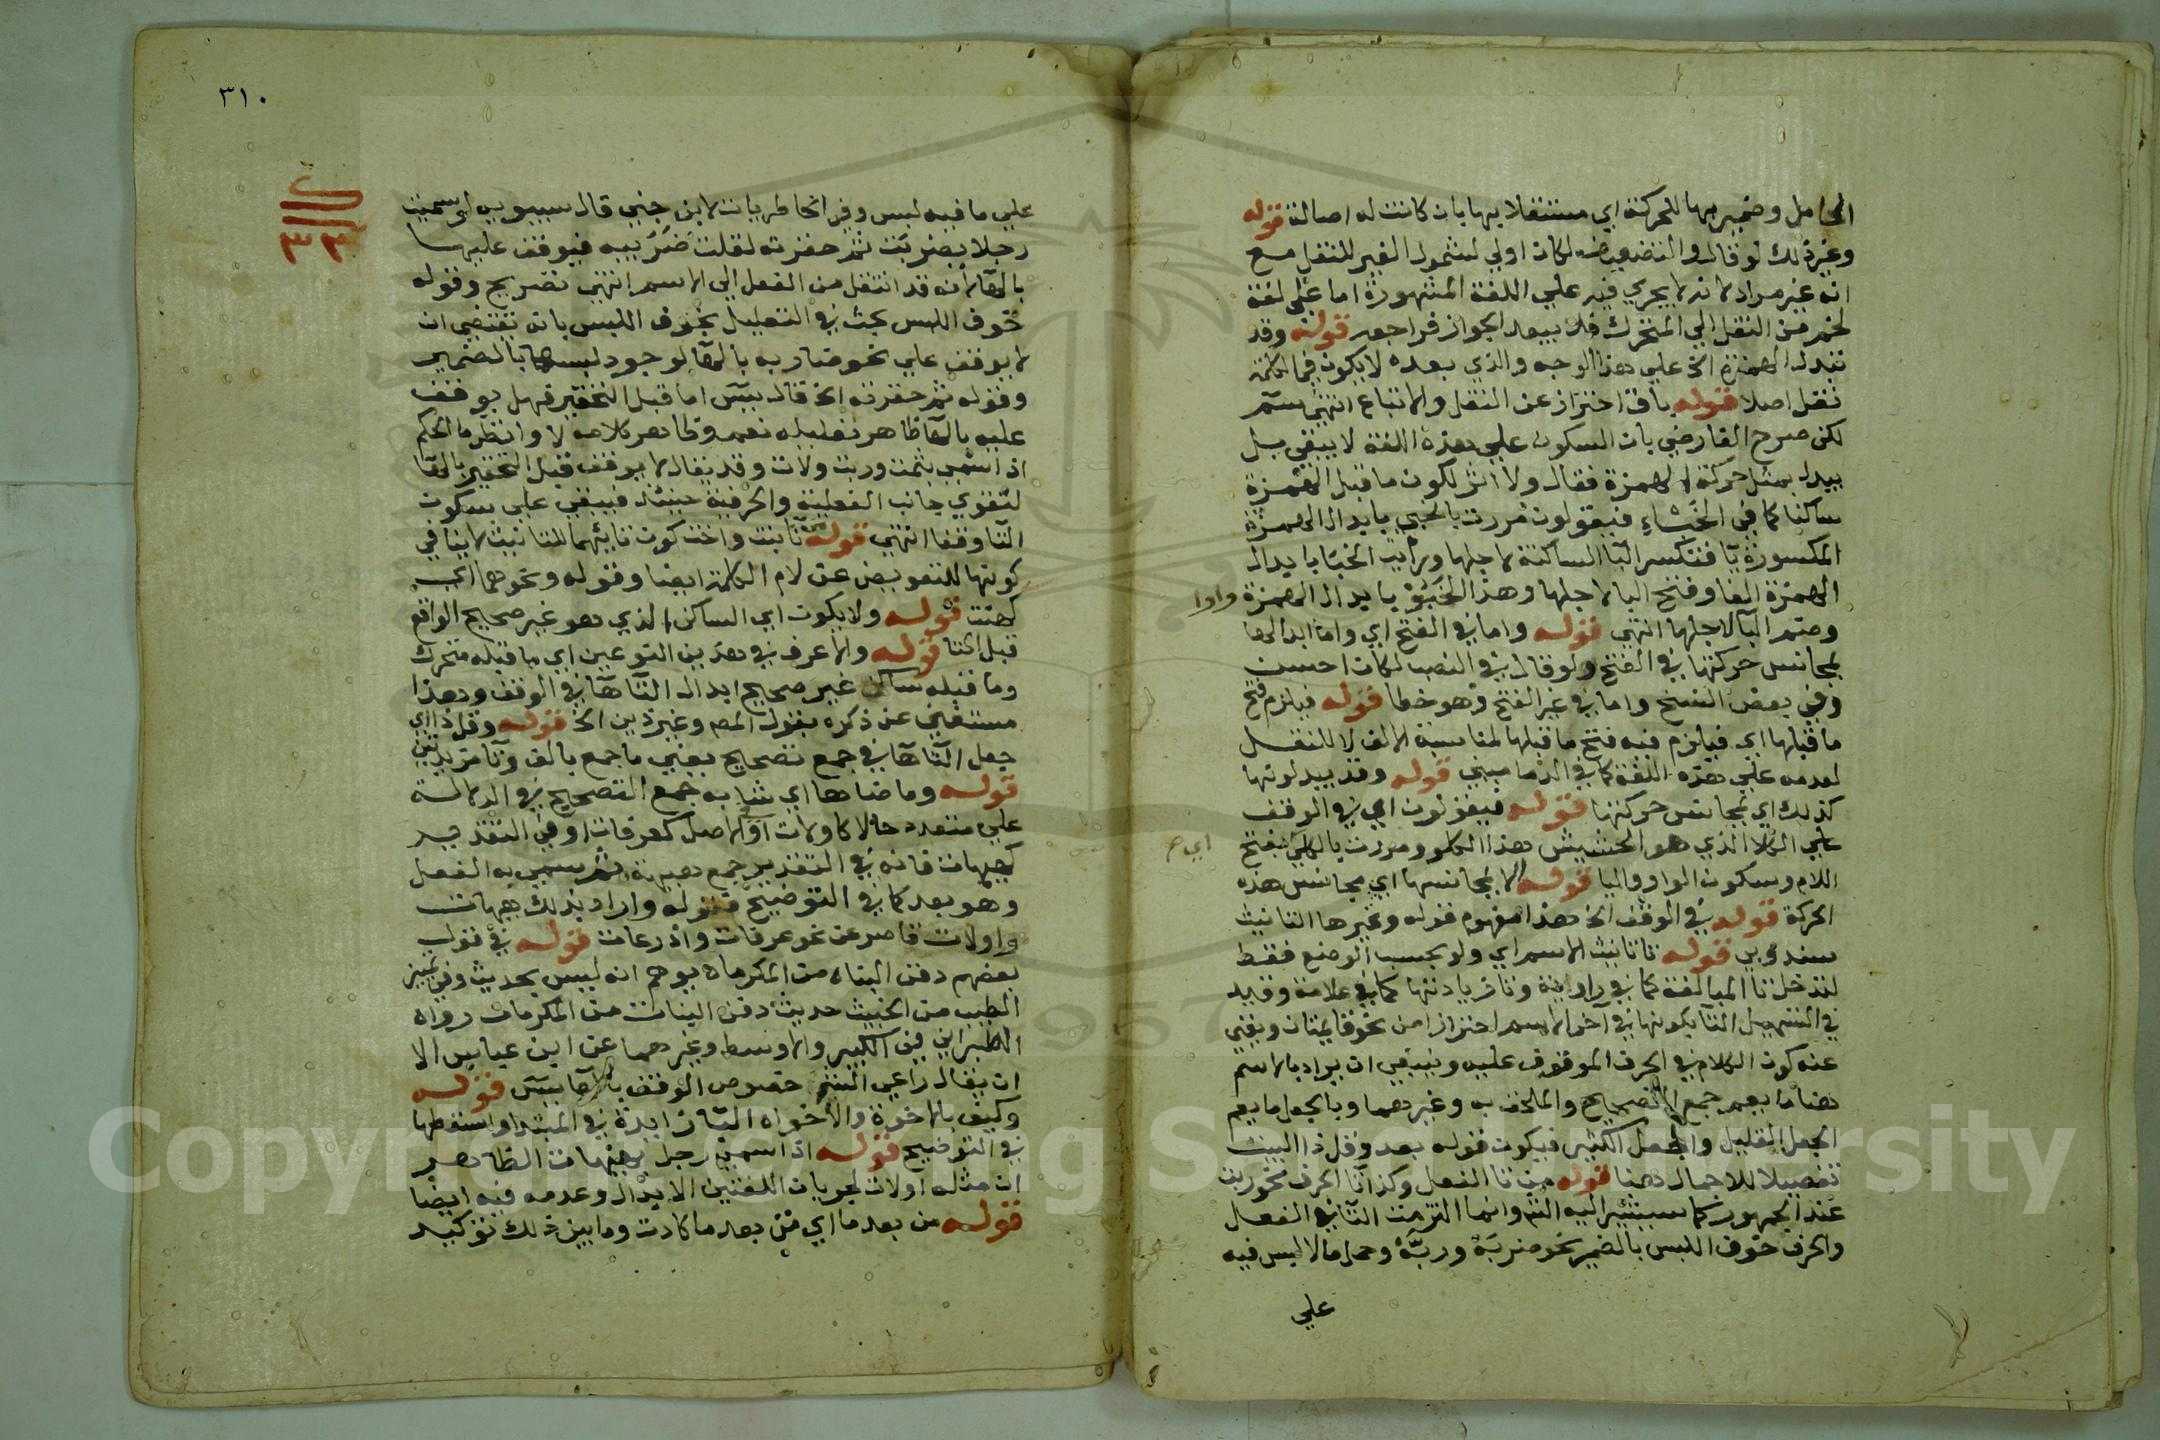 الحامل وضمير بها للحركة اي مستقلا بها بان كانت له اصالة قوله
وغيرذلك لو قال والتضعيف لكان اولي لشمول الغير للنقل مع
انه غير مراد لانه لا يجري فيه علي اللغة المشهورة اما علي لغة
لخم من النقل الي المتحرك فلا يبعد الجواز فراجعه قوله وقد
تبدل الهمزة الخ علي هذا الوجه والذي بعده لا يكون في الكلمة
نقل اصلا قوله باق احتراز عن النقل والاتباع انتهي سم
لكن صرح الفارضي بان السكون علي هذه اللغة لا يبقي بل
يبدل بمثل حركة الهمزة فقال ولا اثر لكون ما قبل الهمزة
ساكنا كما في الخبء فيقولون مررت بالخبي بابدال الهمزة
المكسورة يا فتكسر البا الساكنة لاجلها ورايت الخبا بابدال
الهمزة الفا وفتح البا لاجلها وهذا الخبو بابدال الهمزة واوا
وضم البا لاجلها انتهي قوله واما في الفتح اي واما ابدالها
بمجانس حركتها في الفتح ولو قال في النصب لكان احسن
وفي بعض النسخ واما في غير الفتح وهو خطا قوله فيلزم فتح
ما قبلها اي فيلزم فيه فتح ما قبلها لمناسبة الالف لا للنقل
لعدمه علي هذه اللغة كما في الدماميني قوله وقد يبدلونها
كذلك اي بمجانس حركتها قوله فيقولون اي في الوقف
علي الكلا الذي هو الحشيش هذا الكلو ومررت بالكلي بفتح
اي م
اللام وسكون الواو واليا قوله الا بمجانسها اي بمجانس هذه
الحركة قوله في الوقف الخ هذا مفهوم قوله وغيرها التانيث
سندوبي قوله تا تانيث الاسم اي ولو بحسب الوضع فقط
لتدخل تا المبالغة كما في راوية وتا زيادتها كما في علامة وقيد
في التسهيل التا بكونها في آخر الاسم احترازا من نحو قايمتان ويغني
عنه كون الكلام في الحرف الموقوف عليه وينبغي ان يراد بالاسم
هنا ما يعم جمع التصحيح والملحق به وغيرهما وبالجعل ما يعم
الجعل القليل والجعل الكثير فيكون قوله بعد وقل ذا البيت
تفصيلا للاجمال هنا قوله من تا الفعل وكذا تا الحرف نحو ربت
عند الجمهور كما سيشير اليه الشم وانما التزمت التا في الفعل
والحرف خوف اللبس بالضمير نحو ضربه وربه وحمل ما لا لبس فيه
علي
٣١٠
٣٣
علي ما فيه لبس وفي الخاطريات لابن جني قال سيبويه لو سميت
رجلا بضربت ثم حقرته لقلت ضريبه فيوقف عليها
بالها لانه قد انتقل من الفعل الي الاسم انتهي تصريح وقوله
خوف اللبس بحث في التعليل بخوف اللبس بانه يقتضي ان
لا يوقف علي نحو ضاربه بالها لوجود لبسها بالضمير
وقوله ثم حقرته الخ قال يس اما قبل التحقير فهل يوقف
عليه بالها ظاهر تعليله نعم وظاهر كلامه لا وانظر ما الحكم
اذا سمي بثمت وربت ولات وقد يقال لا يوقف قبل التحقير بالها
لتقوي جانب الفعلية والحرفية حينئذ فيبقي علي سكون
التا وقفا انتهي قوله تا بنت واخت كون تايهما للتانيث لا ينافي
كونها للتعويض عن لام الكلمة ايضا وقوله ونحوهما اي
كهنت قوله ولا يكون اي الساكن الذي هو غير صحيح الواقع
قبل التا قوله والاعرف في هذين النوعين اي ما قبله متحرك
وما قبله ساكن غير صحيح ابدال التا ها في الوقف وهذا
مستغني عن ذكره بقول المصم وغير ذين الخ قوله وقل ذا اي
جعل التا ها في جمع تصحيح يعني ما جمع بالف وتا مزيدتين
قوله وما ضاها اي شابه جمع التصحيح في الدلالة
علي متعدد حالا كاولات او في الاصل كعرفات او في التقدير
كهيهات فانه في التقدير جمع هيهة ثم سمي به الفعل
وهو بعد كما في التوضيح فقوله واراد بذلك هيهات
واولات قاصر عن نحو عرفات واذرعات قوله في قول
بعضهم دفن البناه من المكرماه يوهم انه ليس بحديث وفي تمييز
الطيب من الخبيث حديث دفن البنات من المكرمات رواه
الطبراني في الكبير والاوسط وغيرهما عن ابن عباس الا
ان يقال راعي الشم خصوص الوقف بالها يس قوله
وكيف بالاخوة والاخواه البا زايدة في المبتدا واسقطها
في التوضيح قوله اذا سمي رجل بهيهات الظاهر
ان مثله اولات لجريان اللغتين الابدال وعدمه فيه ايضا
قوله من بعد ما اي من بعد ما كادت وما بين ذلك توكيد